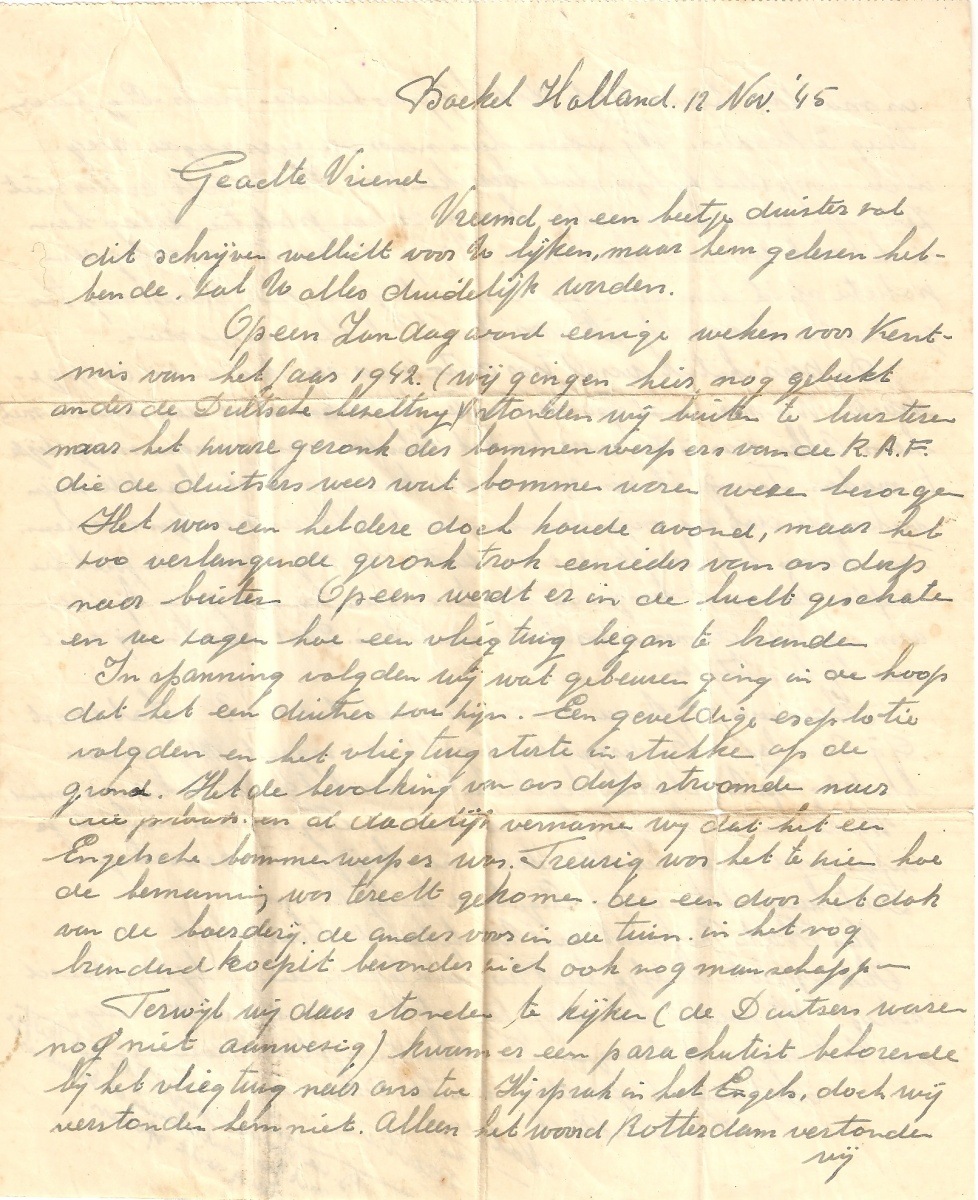 Boekel Holland. 12 Nov. '45
Geachte Vriend
Vreemd en een beetje duister zal
dit schrijven wellicht voor U lijken, maar hem gelezen heb-
bende. zal U alles duidelijk worden.
Op een Zondagavond eenige weken voor Kerst-
mis van het Jaar 1942. (wij gingen hier nog gebukt
onder de Duitsche bezetting) stonden wij buiten te luisteren
naar het zware geronk der bommenwerpers van de R.A.F.
die de duitsers weer wat bommen waren wezen bezorgen
Het was een heldere doch koude avond, maar het
zoo verlangende geronk trok eenieder van ons dorp
naar buiten Opeens werdt er in de lucht geschoten
en we zagen hoe een vliegtuig began te branden
In spanning volgden wij wat gebeuren ging in de hoop
dat het een duitser zou zijn. Een geweldige exsplotie
volgden en het vliegtuig storte in stukke op de
grond. Het de bevolking van ons dorp stroomde naar
en al dadelijk vername wij dat het een
Engelsche bommenwerper was. Treurig was het te zien hoe
de bemanning was terecht gekomen. de een door het dak
van de boerderij. de ander voor in de tuin. in het nog
brandend koepit bevonden zich ook nog manschappen
Terwijl wij daar stonden te kijken (de Duitsers waren
nog niet aanwezig) kwam er een parachutist behorende
bij het vliegtuig naar ons toe Hij sprak in het Engels, doch wij
verstonden hem niet. Alleen het woord Rotterdam verstonden
wij